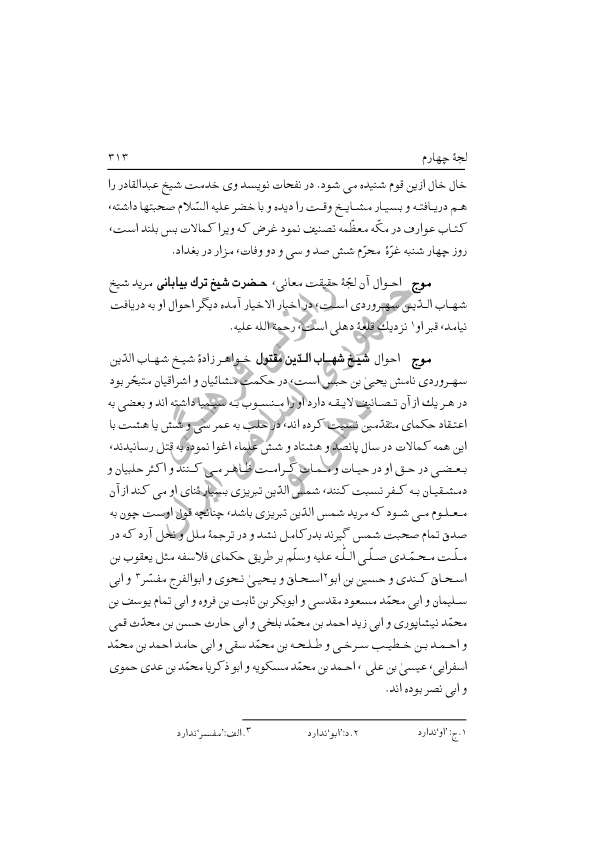 لجهٔ چهارم ۳۱۳
خال خال ازین قوم شنیده می شود. در نفحات نویسد وی خدمت شیخ عبدالقادر را
هم دریافته و بسیار مشایخ وقت را دیده و با خضر علیه السّلام صحبتها داشته،
کتاب عوارف در مکّه معظّمه تصنیف نمود غرض که ویرا کمالات بس بلند است،
روز چهار شنبه غرّهٔ محرّم شش صد و سی و دو وفات، مزار در بغداد.
موج احوال آن لجّهٔ حقیقت معانی، حضرت شیخ ترك بیابانی مرید شیخ
شهاب الدّین سهروردی است، در اخبار الاخیار آمده دیگر احوال او به دریافت
نیامد، قبر او۱ نزدیك قلعهٔ دهلی است، رحمة الله علیه.
موج احوال شیخ شهاب الدّین مقتول خواهر زادهٔ شیخ شهاب الدّین
سهروردی نامش یحییٰ بن حبس است، در حکمت مشائیان و اشراقیان متبحّر بود
در هر یك از آن تصانیف لایقه دارد او را منسوب به سیمیا داشته اند و بعضی به
اعتقاد حکمای متقدّمین نسبت کرده اند، در حلب به عمر سی و شش یا هشت با
این همه کمالات در سال پانصد و هشتاد و شش علماء اغوا نموده به قتل رسانیدند،
بعضی در حق او در حیات و ممات کرامت ظاهر می کنند و اکثر حلبیان و
دمشقیان به کفر نسبت کنند، شمس الدّین تبریزی بسیار ثنای او می کند از آن
معلوم می شود که مرید شمس الدّین تبریزی باشد، چنانچه قول اوست چون به
صدق تمام صحبت شمس گیرند بدر کامل نشد و در ترجمهٔ ملل و نحل آرد که در
ملّت محمّدی صلّی اللّٰه علیه وسلّم بر طریق حکمای فلاسفه مثل یعقوب بن
اسحاق کندی و حسین بن ابو۲اسحاق و یحییٰ نحوی و ابوالفرج مفسّر۳ و ابی
سلیمان و ابی محمّد مسعود مقدسی و ابوبکر بن ثابت بن فروه و ابی تمام یوسف بن
محمّد نیشاپوری و ابی زید احمد بن محمّد بلخی و ابی حارث حسن بن محدّث قمی
و احمد بن خطیب سرخی و طلحه بن محمّد سقی و ابی حامد احمد بن محمّد
اسفرایی، عیسیٰ بن علی ، احمد بن محمّد مسکویه و ابو ذکریا محمّد بن عدی حموی
و ابی نصر بوده اند.
۱.ج: 'او'ندارد ۲.د:'ابو'ندارد ۳.الف:'مفسر'ندارد
رایزنی فرهنگی
جمهوری اسلامی ایران
دهلی نو